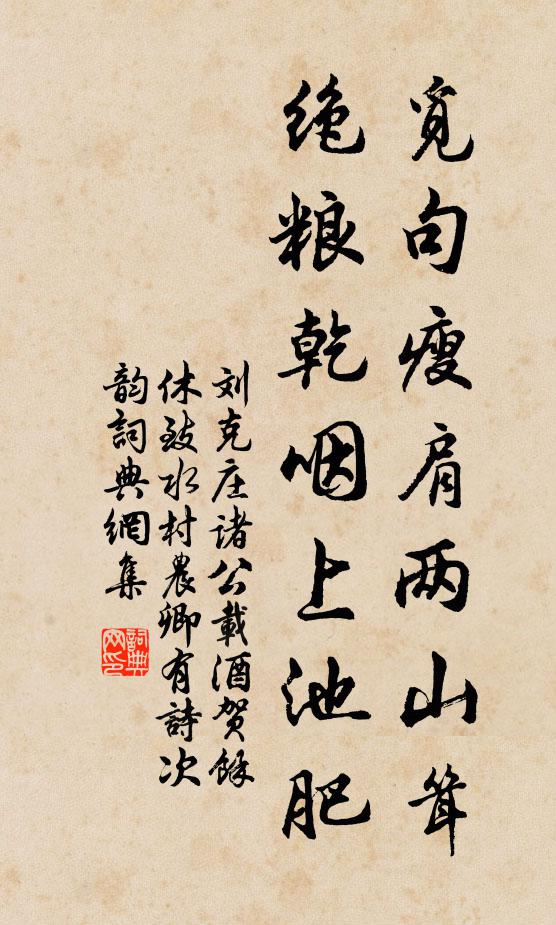 觅句瘦肩两山耸
绝粮乾咽上池肥
刘克庄诸公载酒贺余
休致水村农卿有诗次
韵词典网集
词典
网印